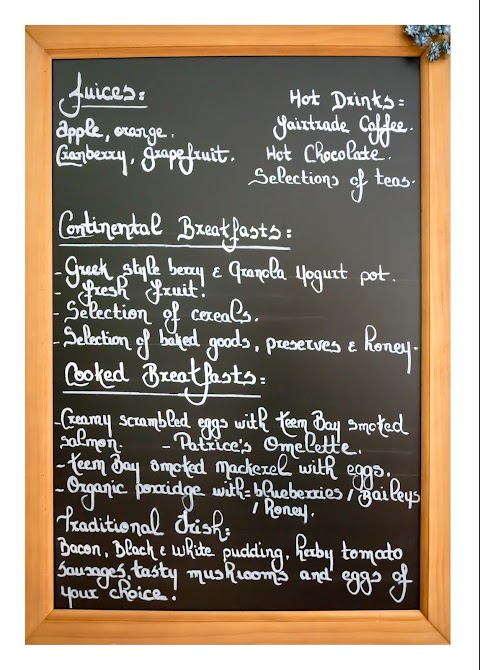 Juices:
Apple, orange.
Cranberry, grapefruit.
Hot Drinks:
Fairtrade Coffee.
Hot Chocolate.
Selections of teas.
Continental Breakfasts:
- Greek style berry & Granola Yogurt pot.
- Fresh Fruit.
- Selection of cereals.
- Selection of baked goods, preserves & honey.
Cooked Breakfasts:
- Creamy scrambled eggs with Keem Bay smoked
salmon. - Patrice's Omelette.
- Keem Bay smoked Mackerel with eggs.
- Organic porridge with: blueberries / Baileys
/ honey.
Traditional Irish:
Bacon, Black & white pudding, herby tomato
sausages, tasty mushrooms and eggs of
your choice!